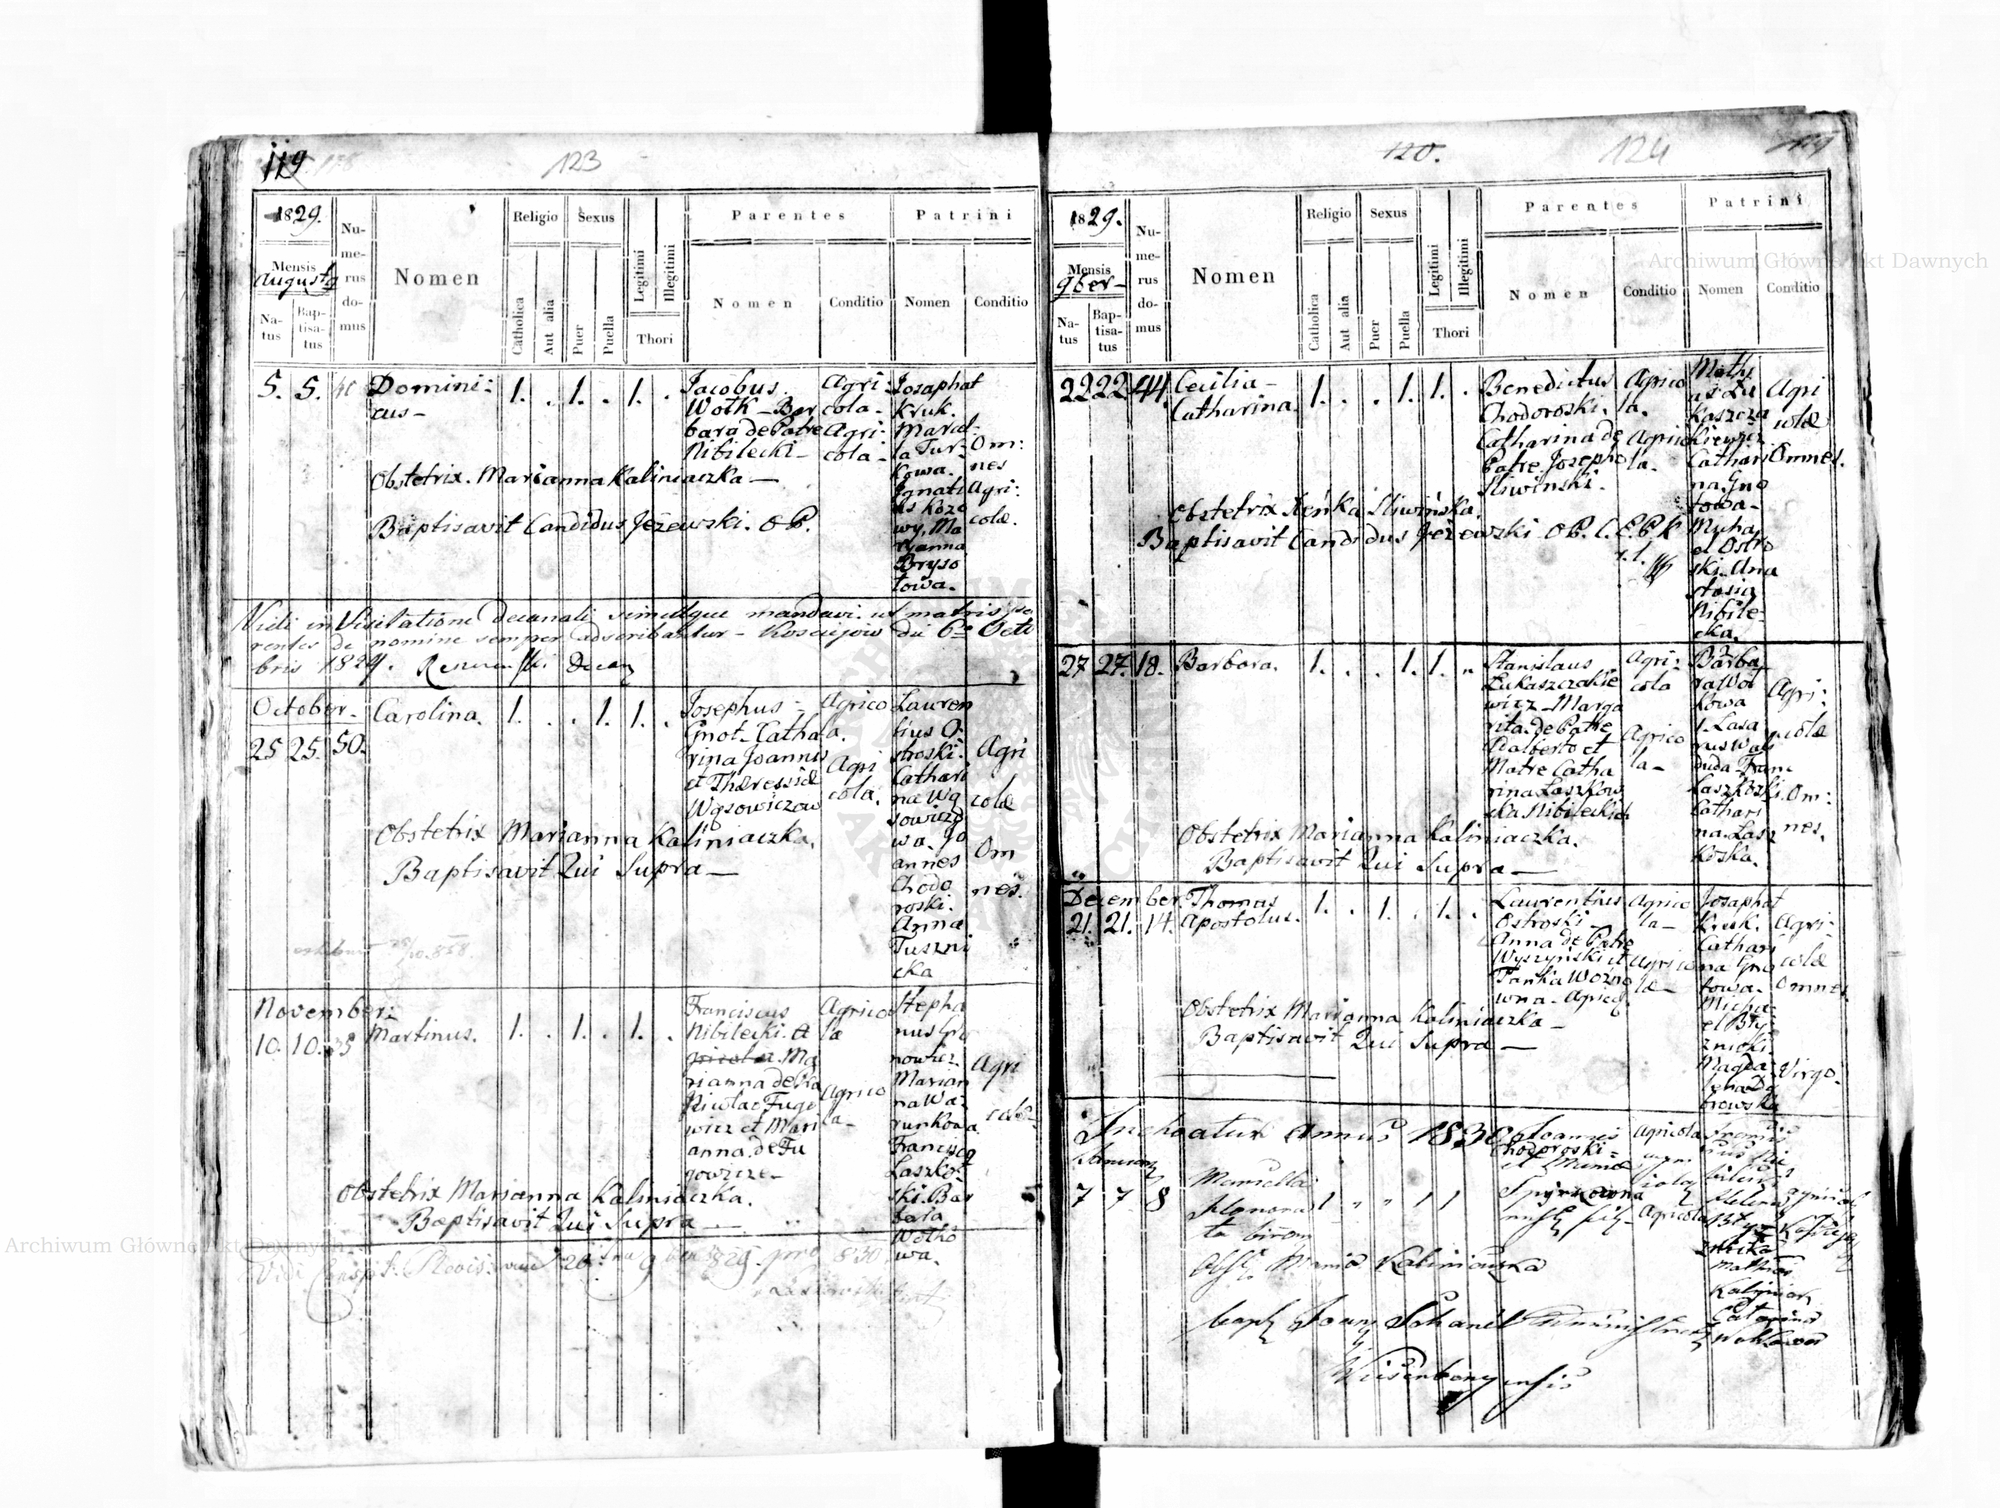 119
123
1829.
Mensis
Augusti
Natus
Baptisatus
Numerus domus
Nomen
Religio
Catholica
Aut alia
Sexus
Puer
Puella
Legitimi
Illegitimi
Thori
Parentes
Nomen
Conditio
Patrini
Nomen
Conditio
5. 5. Domini:
cus-
1. . 1. . 1. .
Jacobus.
Wołk - Bar
bara de Patre
Nibilecki -
Agri:
cola -
Agri:
cola -
Josaphat
Kruk.
Marcel-
la Tur-
kowa.
Ignati
us Kozo
wy, Ma
ryanna
Bryso
towa.
Om:
nes
Agri:
colæ.
Obstetrix. Marianna Kaliniaczka -
Baptisavit Candidus Jeżewski. O P.
Vidi in Visitatione decanali simulque mandavi ut matris pa
rentes de nomine semper adscribantur - die 6ta Octo
bris 1829.
October.
25 25. 50. Carolina.
1. . . 1. 1. .
Josephus -
Gnot - Catha
rina Joannis
et Theresiæ
Wąsowiczow
Agrico
la.
Agri
cola.
Lauren
tius O-
stroski.
Cathari
na Wą
sowiczo
wa. Jo
annes
Chodo
roski.
Anna
Tuszni
cka
Agri
colæ
Om
nes.
Obstetrix Marianna Kaliniaczka.
Baptisavit Qui Supra -
November.
10. 10. Martinus.
1. . 1. . 1. .
Franciscus
Nibilecki. A
gricola. Ma
rianna de Pa
Nicolao Fugo
wicz et Mari
anna de Fu
gowicze -
Agrico
la
Agrico
la -
Stepha
nus
nowicz
Marian
na Wa-
runkowa
Francisc
Laszko
ski. Bar
bara
Wołko
wa.
Agri
colæ.
Obstetrix Marianna Kaliniaczka.
Baptisavit Qui Supra -
Vidi
120.
124
1829.
Mensis
9ber -
Natus
Baptisatus
Numerus domus
Nomen
Religio
Catholica
Aut alia
Sexus
Puer
Puella
Legitimi
Illegitimi
Thori
Parentes
Nomen
Conditio
Patrini
Nomen
Conditio
22 22. 44. Cecilia -
Catharina.
1. . . 1. 1. .
Benedictus
Chodoroski.
Catharina de
Patre Josepho
Sliwinski.
Agrico
la.
Agrico
la -
Mathi
as Lu
kaszcza
kiewicz
Cathari
na Gno
towa -
Micha
el Ostro
ski. Ana
stasia
Nibile-
cka.
Agri
colæ
Omnes.
Obstetrix Xeńka Sliwińska.
Baptisavit Candidus Jeżewski O P. C. E. P. K
27 27. 18. Barbara.
1. . . 1. 1. "
Stanislaus
Łukaszczakie
wicz - Marga
rita. de Patre
Adalberto et
Matre Catha
rina Laszkow
cka Nibileckich
Agri-
cola
Agrico
la -
Barba
ra Woł
kowa
Laza
rus Was
duda Franc
Laszkoski
Cathari
na Lasz
koska.
Agri:
colæ
Om:
nes.
Obstetrix Marianna Kaliniaczka.
Baptisavit Qui Supra -
December.
21. 21. 14. Thomas
Apostolus.
1. . 1. . 1. .
Laurentius
Ostroski -
Anna de Patre
Wyszyński et
Tańka Woźno
wna - Agrico
Agrico
la -
Agrico
la -
Josaphat
Kruk.
Cathari
na Gno
towa -
Micha
el Bry
znicki.
Magda
lena Do
browska
Agri-
colæ
Omnes
Virgo -
Obstetrix Marianna Kaliniaczka -
Baptisavit Qui Supra -
Inchoatur Annus 1830
7 7 8
Joannes
Chodoroski
Agricola
Agricola
Obst: Kaliniaczka
Joann
Archiwum Główne Akt Dawnych
Archiwum Główne Akt Dawnych